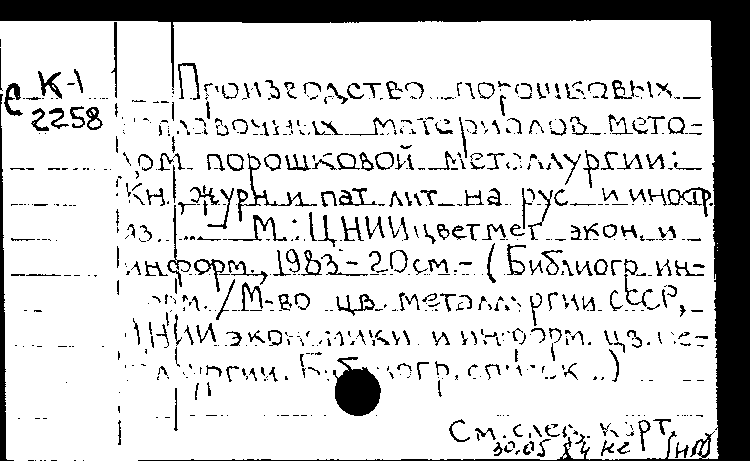 С К-1
2258
Производство порошковых
наплавочных материалов мето-
дом порошковой металлургии:
Кн., журн. и пат. лит. на рус. и иностр.
яз. ... — М.: ЦНИИцветмет экон. и
информ., 1983 - 20см. - (Библиогр. ин-
форм. / М-во цв. металлургии СССР,
ЦНИИ экономики и информ. цв. ме-
таллургии. Библиогр. список ..)
См. след. карт.
30.05 84 кс